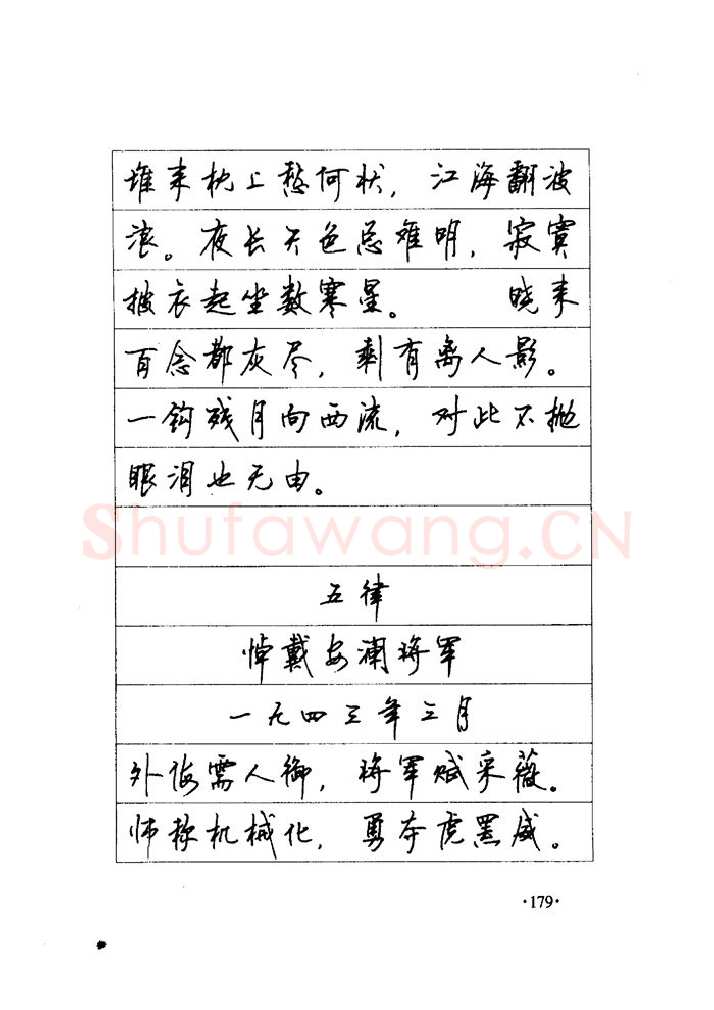 堆来枕上愁何状，江海翻波
浪。夜长天色总难明，寂寞
披衣起坐数寒星。 晓来
百念都灰尽，剩有离人影。
一钩残月向西流，对此不抛
眼泪也无由。
Shufawang.CN
五律
悼戴安澜将军
一九四三年三月
外侮需人御，将军赋采薇。
师称机械化，勇夺虎罴威。
·179·